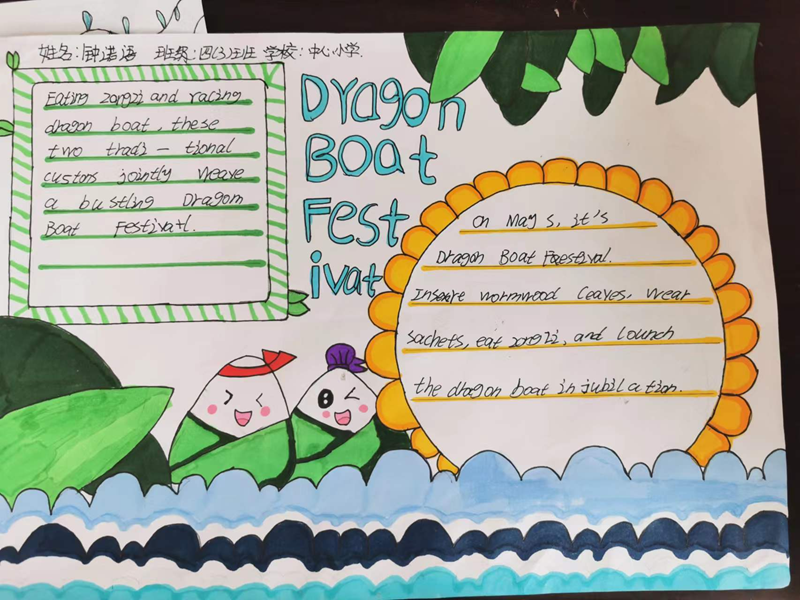 姓名:钟诺语 班级:四(3)班 学校:中心小学.
Eating zongzi and racing
dragon boat, these
two tradi - tional
customs jointly weave
a bustling Dragon
Boat Festival.
Dragon
Boat
Fest
ival
On May 5, it's
Dragon Boat Festival.
Insert wormwood leaves, wear
sachets, eat zongzi, and lounch
the dragon boat in jubilation.